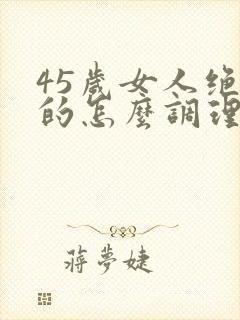 45歲女人绝
的怎麼調理
蔣夢婕